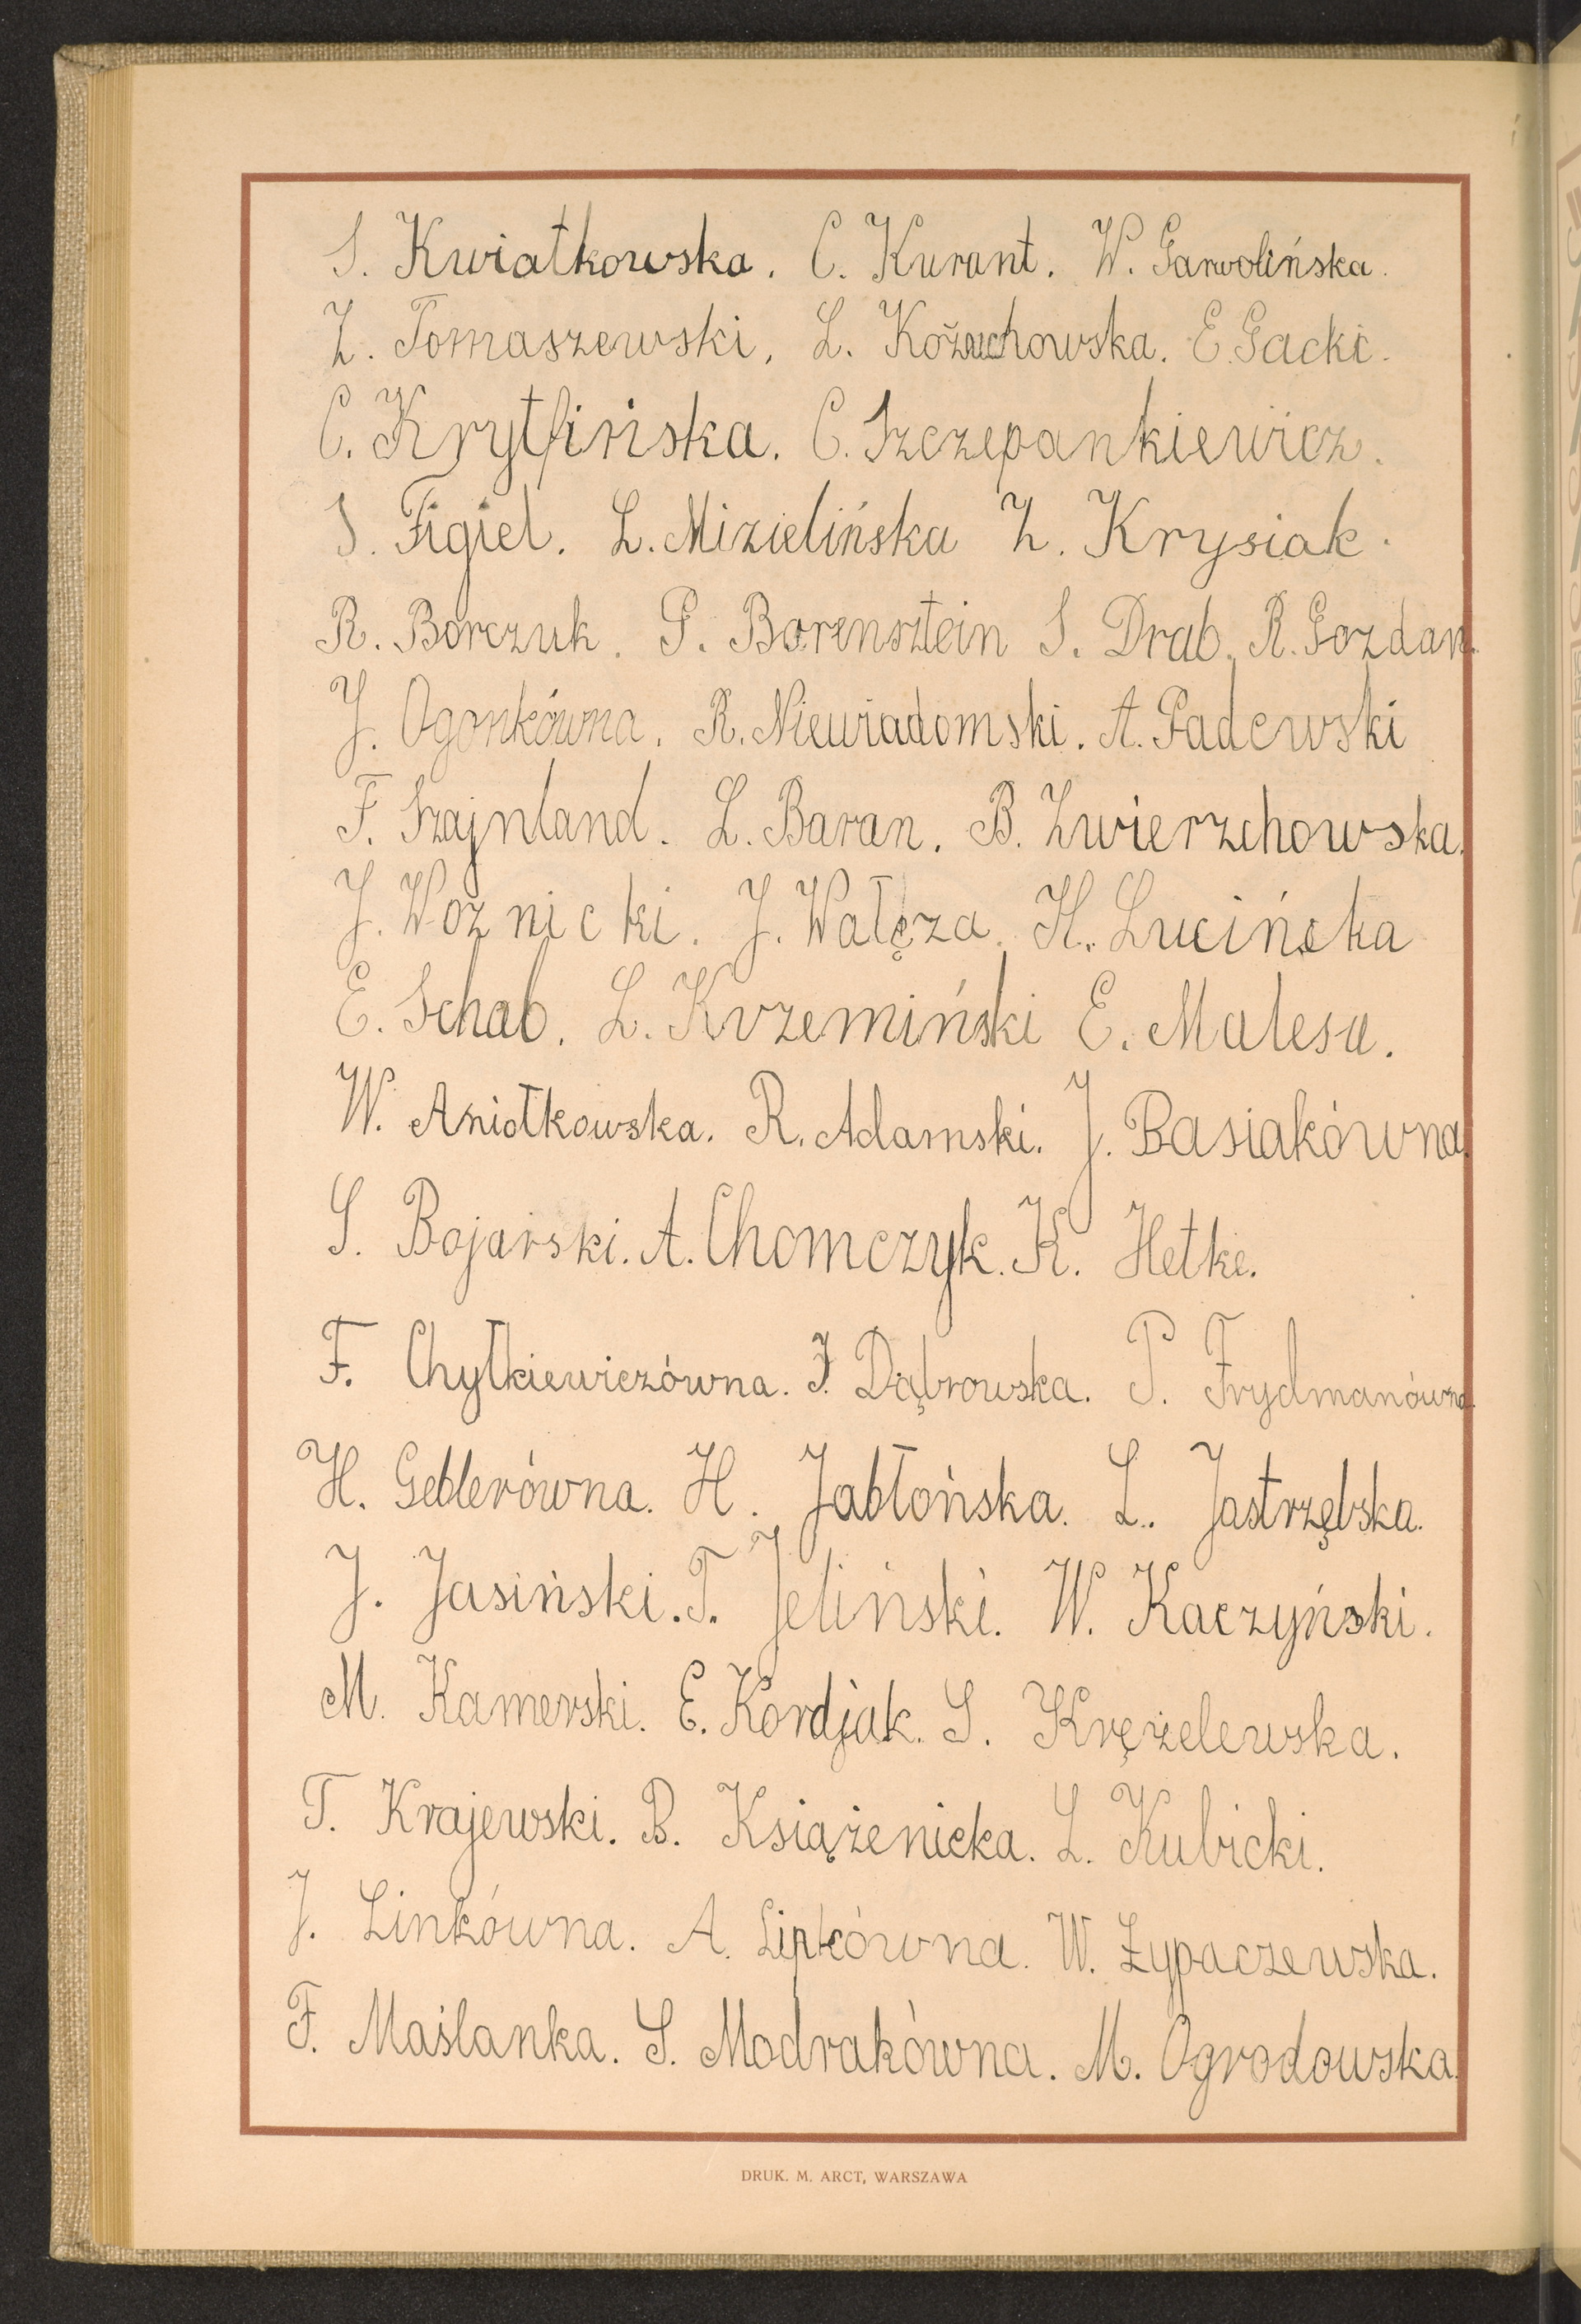 S. Kwiatkowska. C. Kurant. W. Garwolińska.
Z. Tomaszewski. L. Kożuchowska. E. Gacki.
C. Krytfińska. C. Szczepankiewicz.
S. Figiel. L. Mizielińska Z. Krysiak.
R. Borczuk. G. Borensztein S. Drab. R. Gozdan.
J. Ogonkówna. R. Niewiadomski. A. Padewski
F. Szajnland. L. Baran. B. Zwierzchowska.
J. Woźnicki. J. Wałęza. K. Lucińska
E. Schab. L. Krzemiński E. Malesa.
W. Aniołkowska. R. Adamski. J. Basiakówna.
S. Bojarski. A. Chomczyk. K. Hetke.
F. Chyłkiewiczówna. J. Dąbrowska. P. Frydmanówna.
H. Geblerówna. H. Jabłońska. L. Jastrzębska.
J. Jasiński. T. Jeliński. W. Kaczyński.
M. Kamerski. E. Kordjak. S. Krężelewska.
T. Krajewski. B. Książenicka. L. Kubicki.
J. Linkówna. A. Lipkówna. W. Łypaczewska.
F. Maślanka. S. Modrakówna. M. Ogrodowska.
DRUK. M. ARCT, WARSZAWA